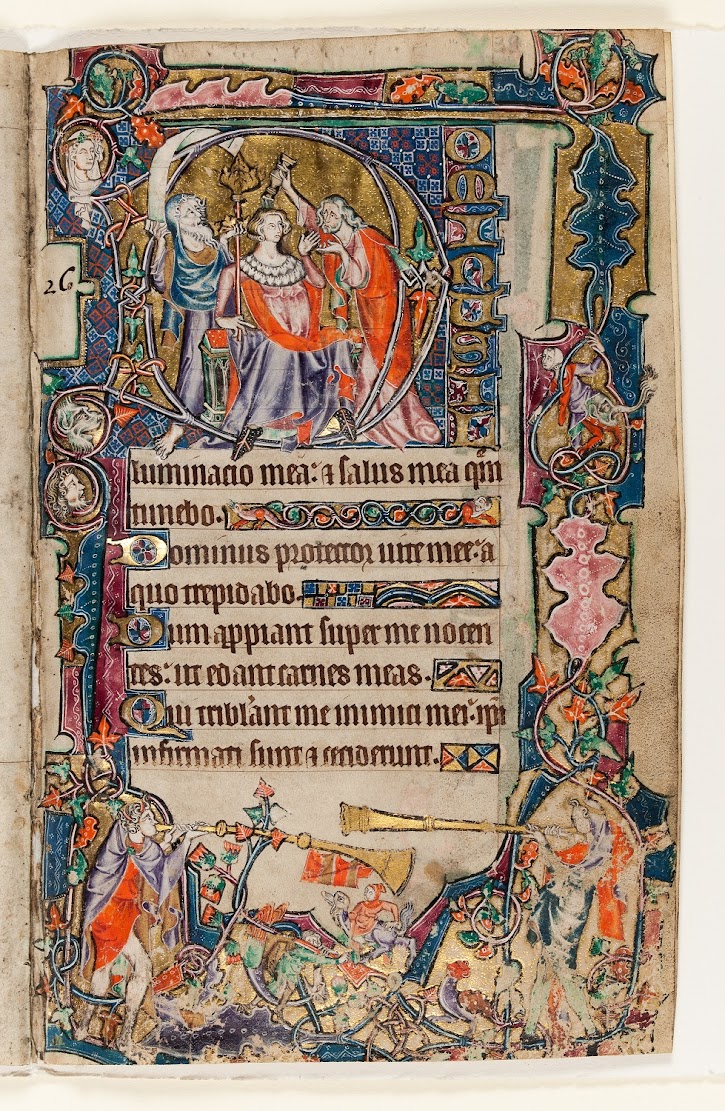 26
D
luminacio mea: ⁊ salus mea qm̄
timebo.
Dominus protector uite mee: a
quo trepidabo.
Dum appiant super me nocen
tes: ut edant carnes meas.
Qui tribl'ant me inimici mei: ipi
infirmati sunt ⁊ ceciderunt.